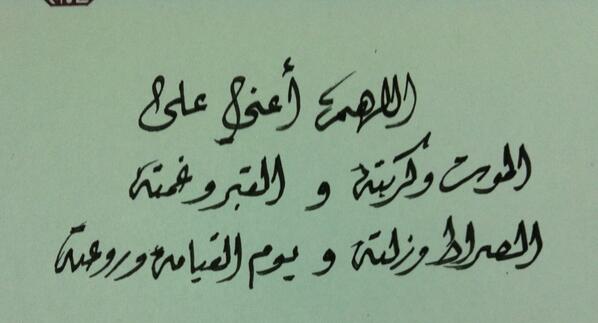 اللهم أعني على
الموت وكربته و القبر وغمته
الصراط وزلته و يوم القيامة وروعته